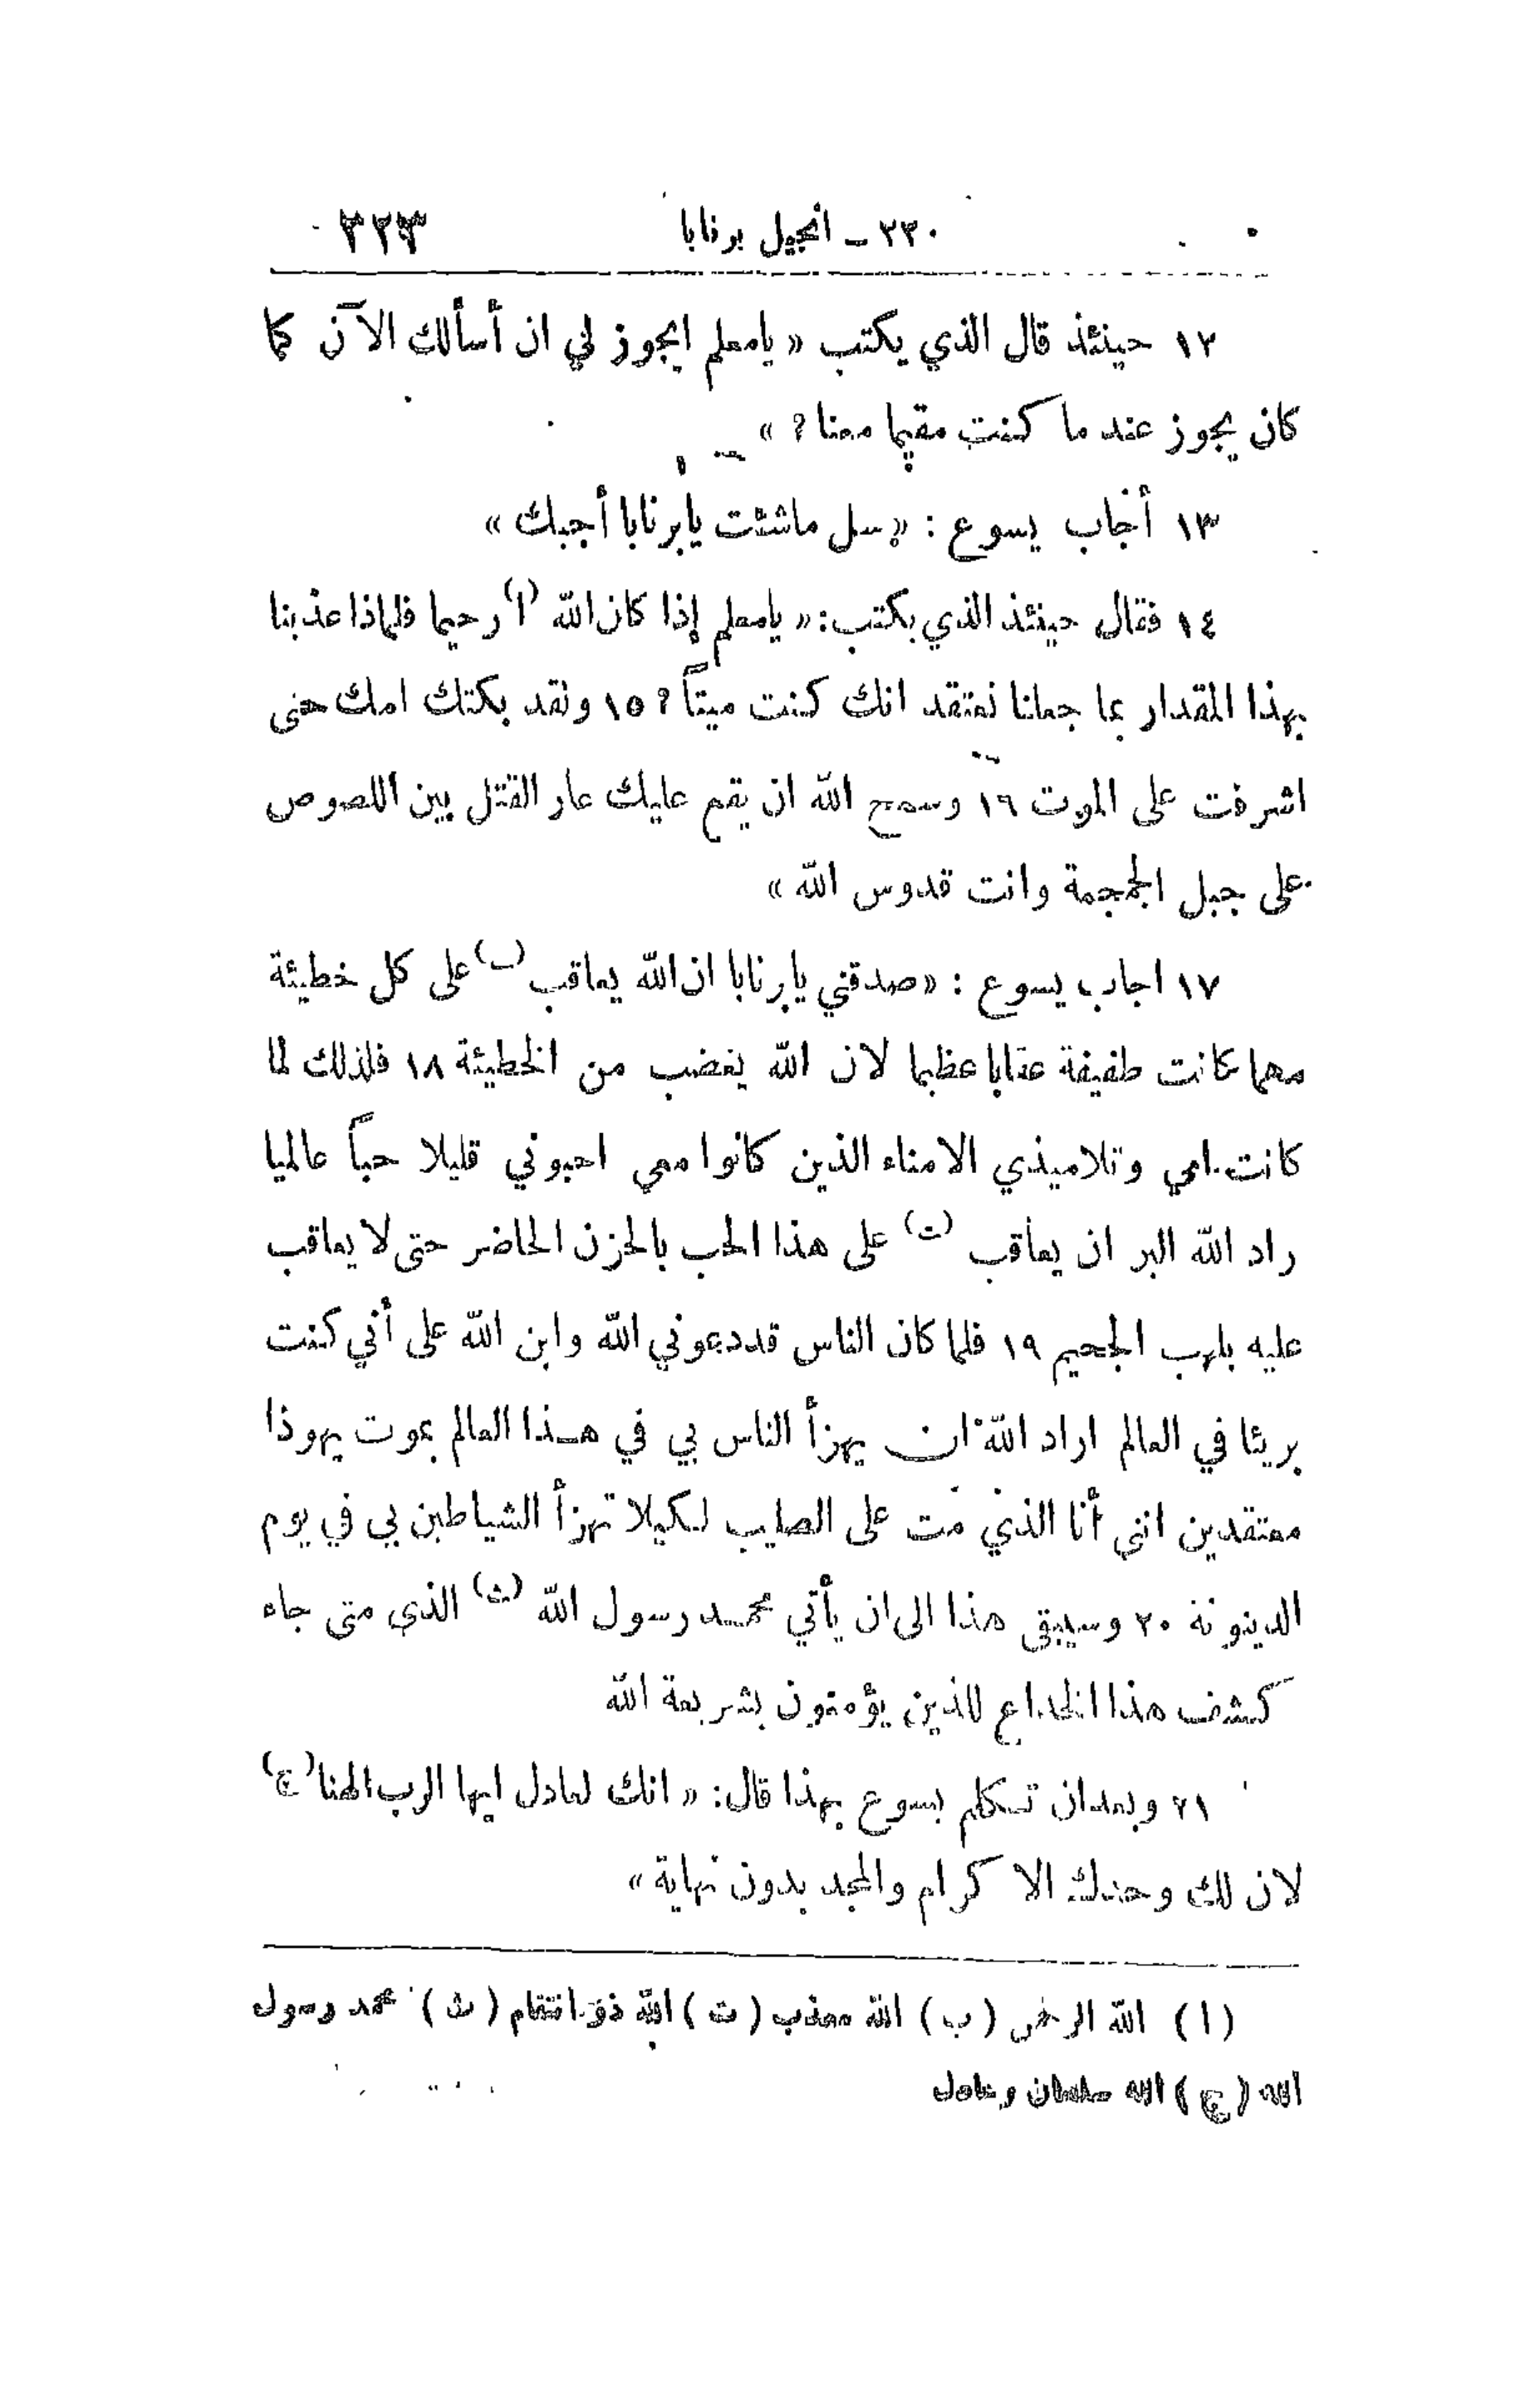 ٢٣٠ – انجيل برنابا ٣٢٣
١٢ حينئذ قال الذي يكتب « يامعلم ايجوز لي ان أسألك الآن كما
كان يجوز عند ما كنت مقيما معنا ? »
١٣ أجاب يسوع : « سل ماشئت يابرنابا أجبك »
١٤ فقال حينئذ الذي يكتب : « يامعلم إذا كان الله (ا) رحيما فلماذا عذبنا
بهذا المقدار بما جعلنا نعتقد انك كنت ميتاً ? ١٥ ولقد بكتك امك حتى
اشرفت على الموت ١٦ وسمح الله ان يقع عليك عار القتل بين اللصوص
على جبل الجمجمة وانت قدوس الله »
١٧ اجاب يسوع : « صدقني يابرنابا ان الله يعاقب (ب) على كل خطيئة
مهما كانت طفيفة عقابا عظيما لان الله يغضب من الخطيئة ١٨ فلذلك لما
كانت امي وتلاميذي الامناء الذين كانوا معي احبوني قليلا حباً عالميا
راد الله البر ان يعاقب (ت) على هذا الحب بالحزن الحاضر حتى لا يعاقب
عليه بلهب الجحيم ١٩ فلما كان الناس قد دعوني الله وابن الله على أني كنت
بريئا في العالم اراد الله ان يهزأ الناس بي في هذا العالم بموت يهوذا
معتقدين انني أنا الذي مت على الصليب لكيلا تهزأ الشياطين بي في يوم
الدينونة ٢٠ وسيبقى هذا الى ان يأتي محمد رسول الله (ث) الذي متى جاء
كشف هذا الخداع للذين يؤمنون بشريعة الله
٢١ وبعد ان تكلم يسوع بهذا قال : « انك لعادل ايها الرب الهنا (ج)
لان لك وحدك الا كرام والمجد بدون نهاية »
(ا) الله الرحمن (ب) الله معذب (ت) الله ذو انتقام (ث) محمد رسول
الله (ج) الله سلطان وعادل